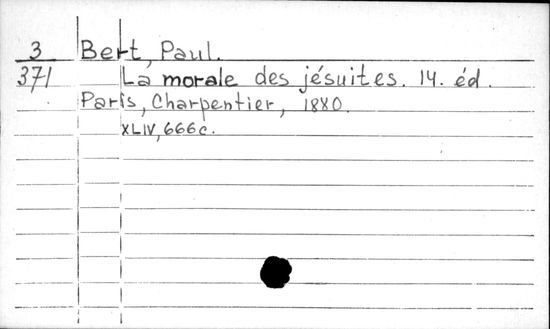 3 Bert, Paul.
371 La morale des jésuites. 14. éd.
Paris, Charpentier, 1880.
XLIV, 666c.